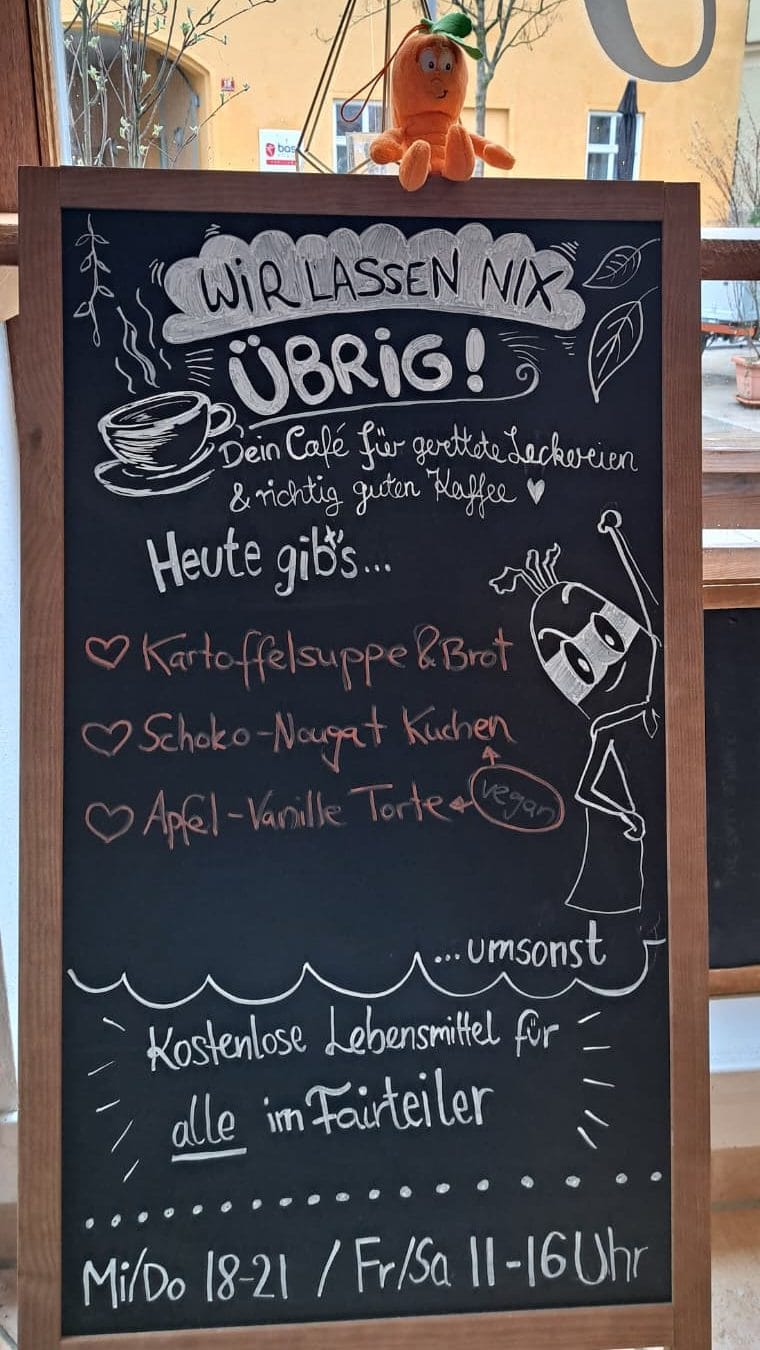 WIR LASSEN NIX
ÜBRIG!
Dein Café für gerettete Leckereien
& richtig guten Kaffee
Heute gibt's...
Kartoffelsuppe & Brot
Schoko-Nougat Kuchen
Apfel-Vanille Torte
vegan
...umsonst
Kostenlose Lebensmittel für
alle im Fairteiler
Mi/Do 18-21 / Fr/Sa 11-16 Uhr